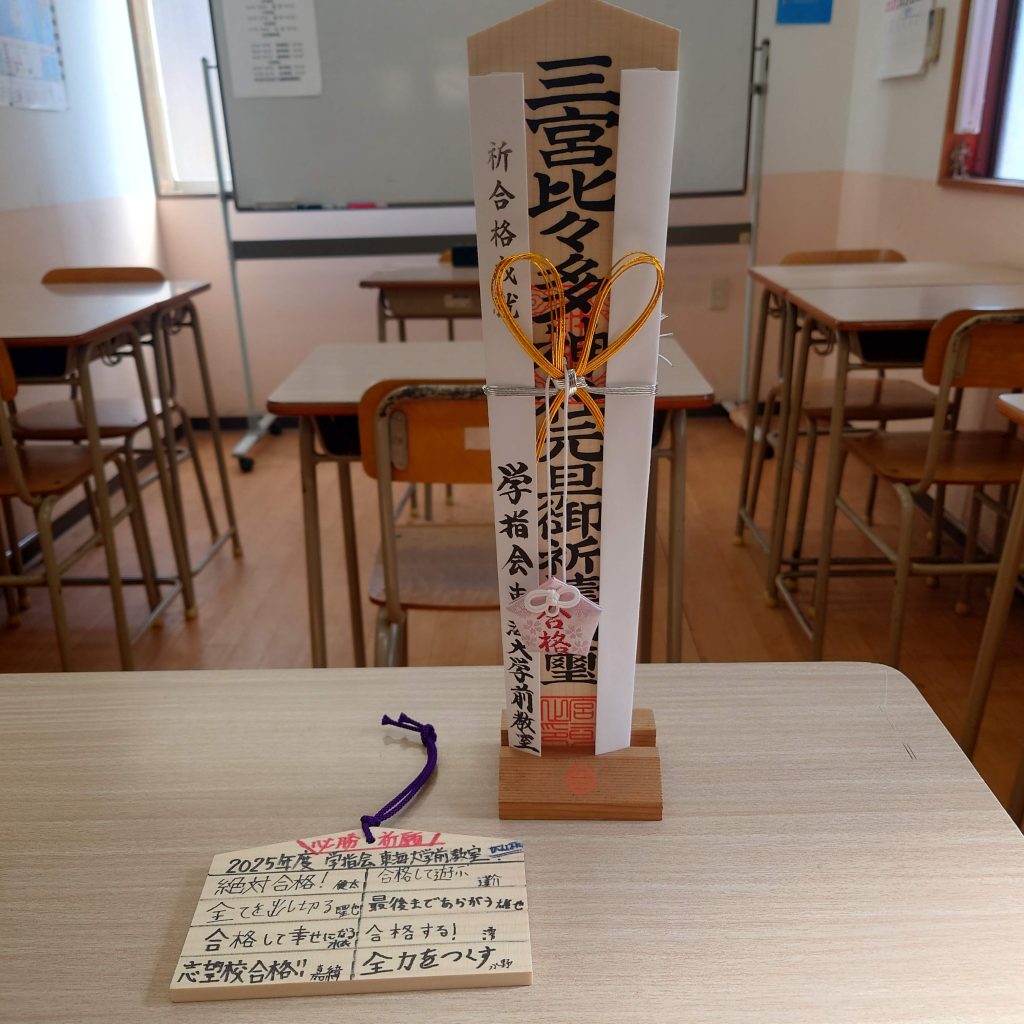 三宮比々多神社元旦御祈祷璽
祈合格成就
学指会東海大学前教室
合格
必勝祈願
2025年度 学指会 東海大学前教室
絶対合格! 健太
合格して遊ぶ 蓮介
全てを出し切る 聖也
最後まであらがう 雄也
合格して幸せになる
合格する! 澪
志望校合格!! 嘉緒
全力をつくす 小野